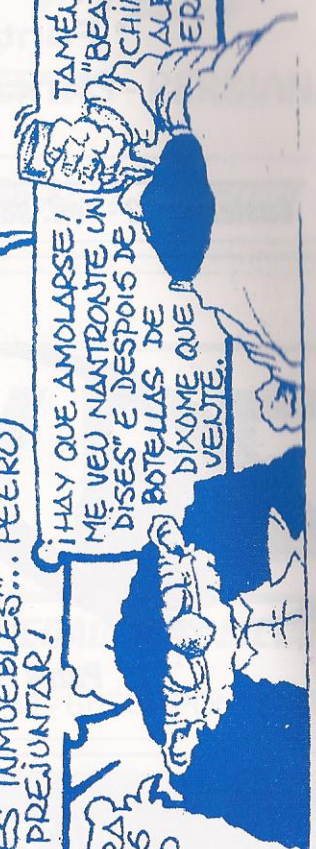 ES INMOEBLES"... PEERO
PREJUNTAR!
RA
¡HAY QUE AMOLARSE!
ME VEU NANTRONTE UN
DISES" E DESPOIS DE
BOTELLAS DE
DÍXOME QUE
VENTE.
TAMÉN
"BEA
CHI
AL
ER